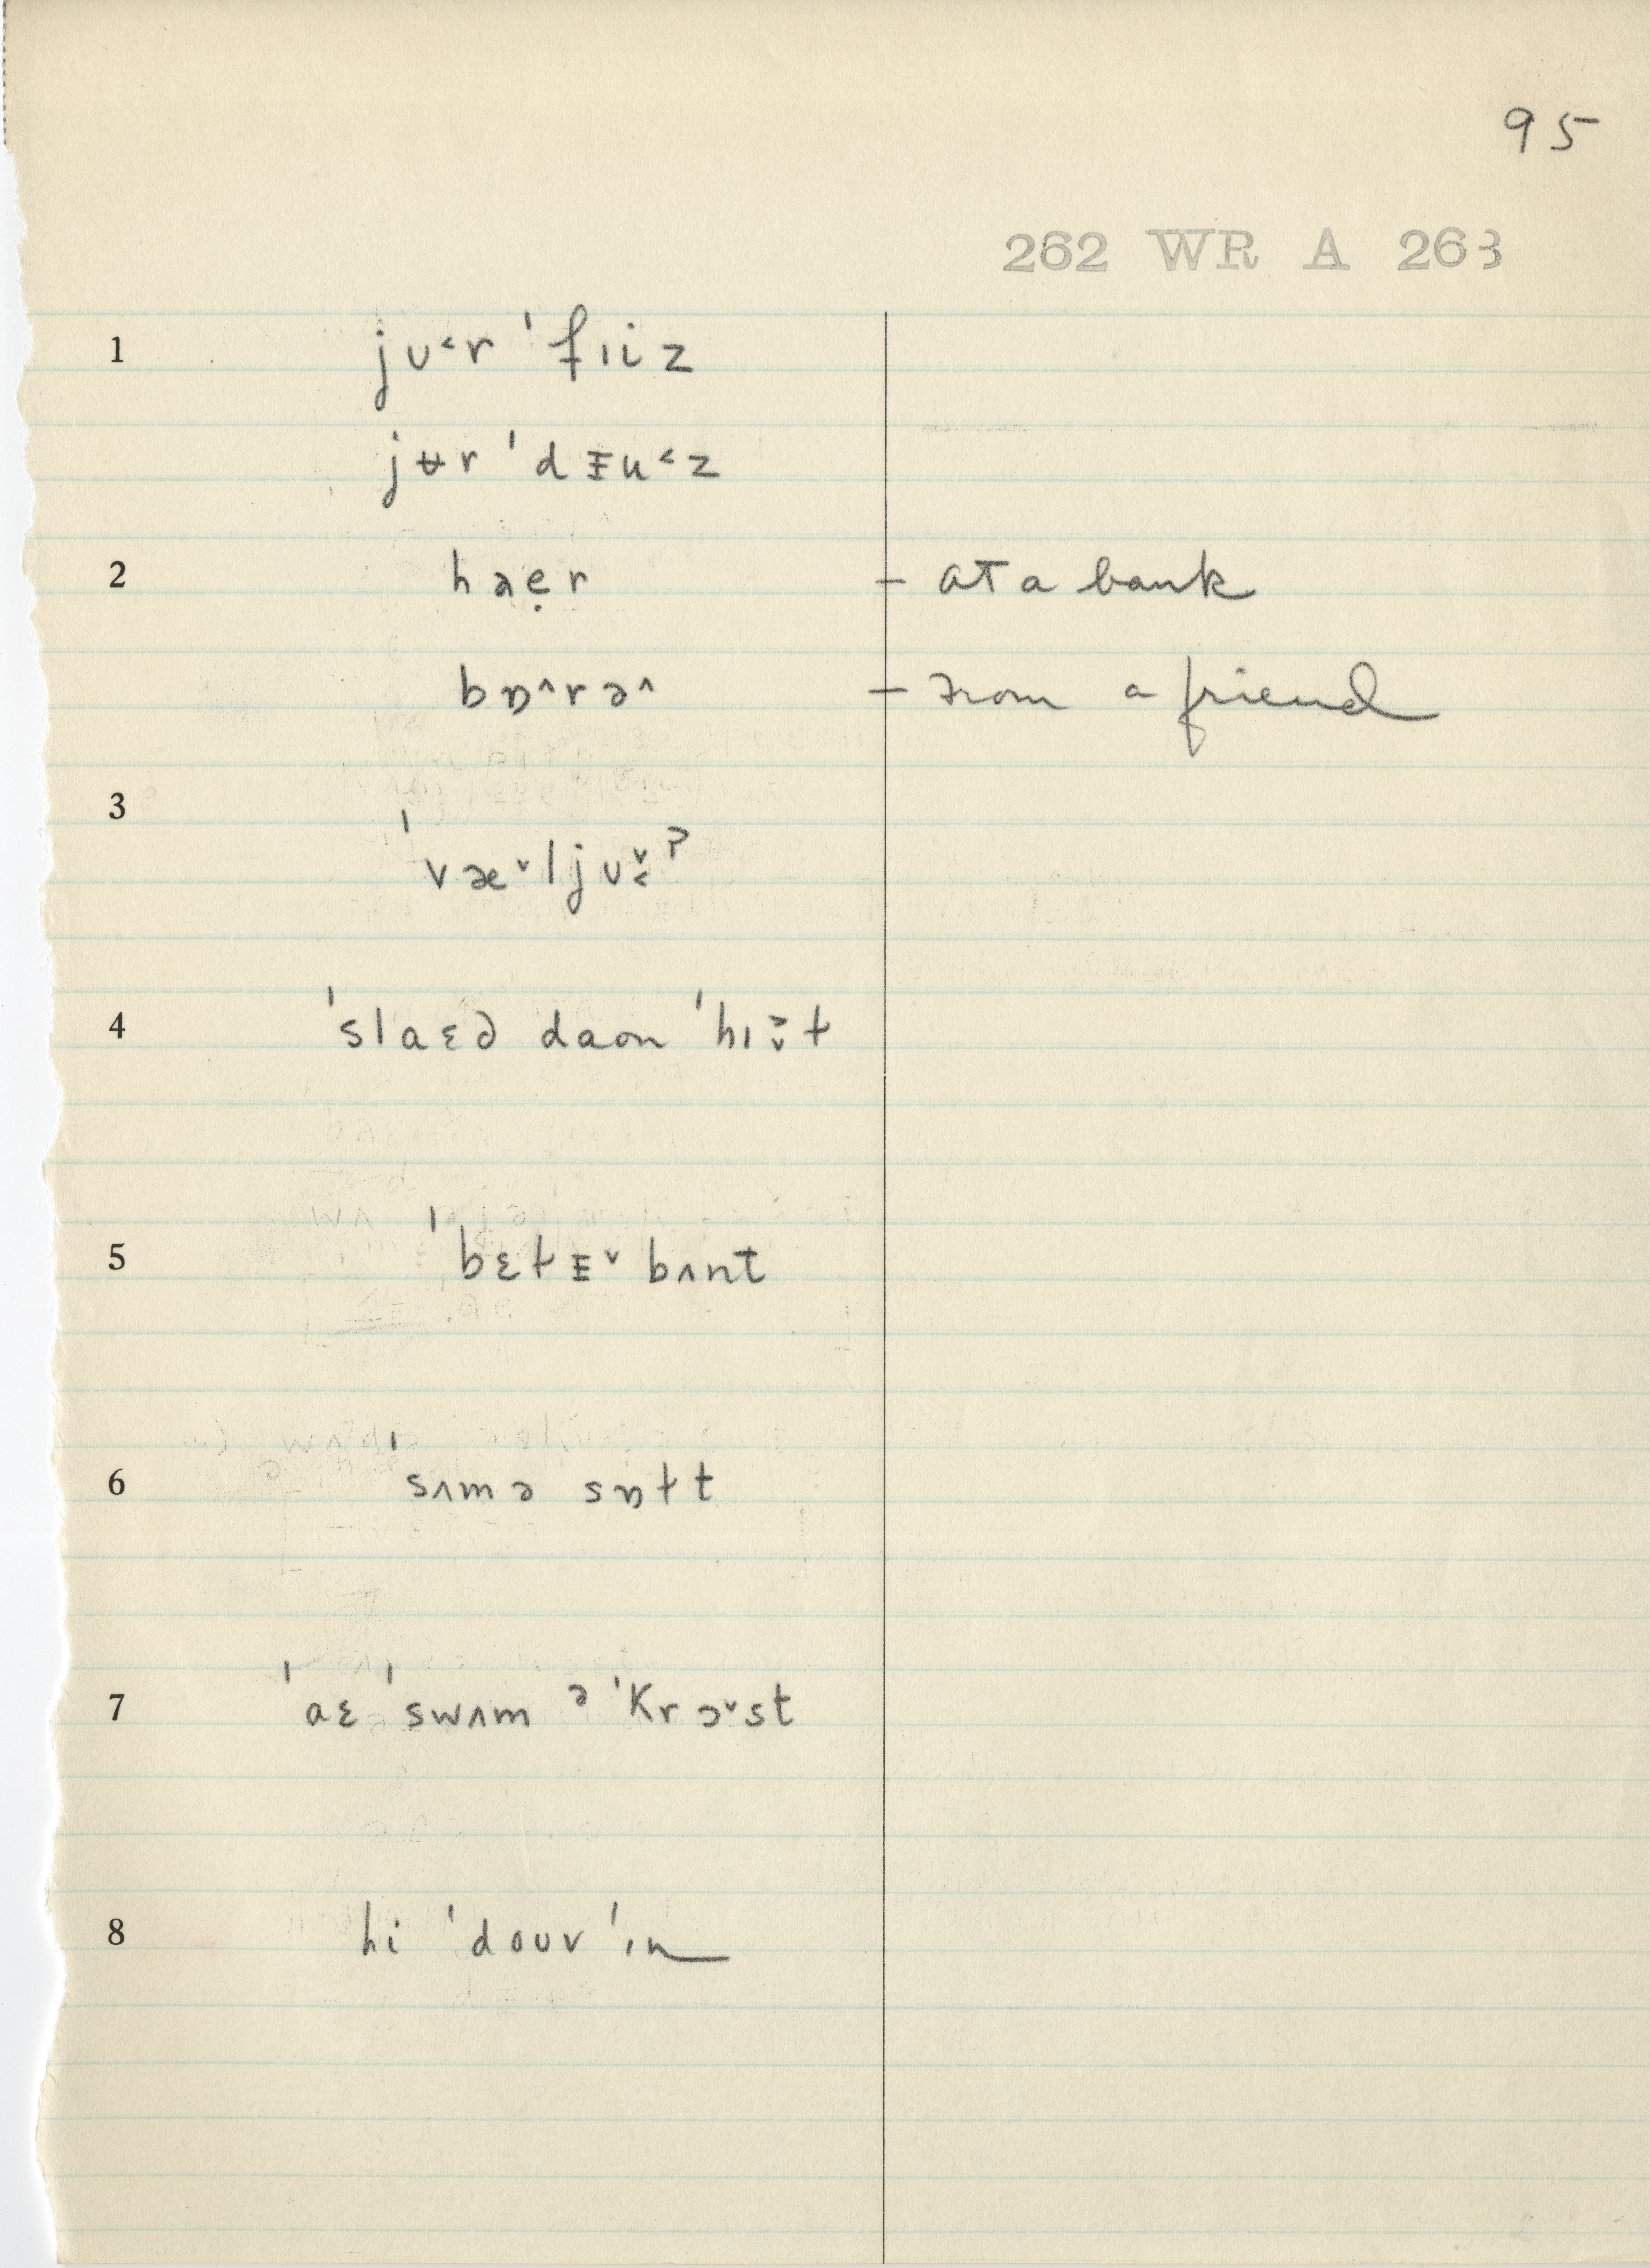 95
262 WR A 263
1 jʊ˂r ˈfɪiz
jʉr ˈdᵻu˂z
2 haẹr – at a bank
bɒ˄rə˄ – from a friend
3 ˈvæ˅ljʊ˅˂ˀ
4 ˈslaɛd daʊn ˈhɪ˃˅ɫ
5 ˈbɛɫᵻ˅ bʌnt
6 sʌmə sɒɫt
7 ˈaɛ ˈswʌm əˈkrɔ˅st
8 hi ˈdoʊv ˈɪn